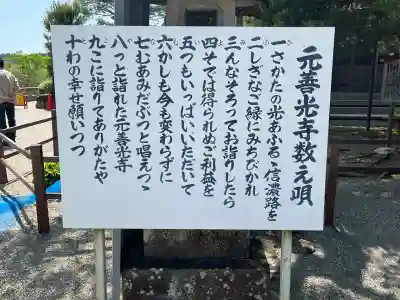 元善光寺数え唄
一さかたの光あふるゝ信濃路を
二しきなご縁にみちびかれ
三んなそろってお詣りしたら
四そでは得られぬご利益を
五つもいっぱいいただいて
六かしも今も変わらずに
七むあみだぶつと唱えつゝ
八っと詣れた元善光寺
九こに詣りてありがたや
十わの幸せ願いつつ